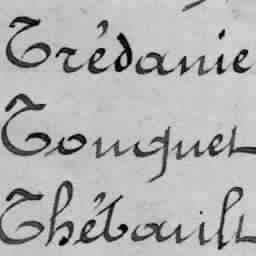 Trédanie
Touquet
Thébault